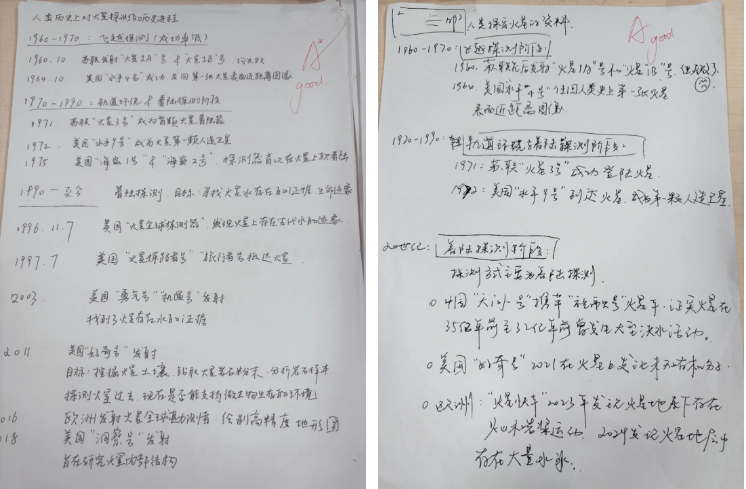 人类历史上对火星探测的历史进程
1960-1970：飞越探测（成功率低）
1960.10 苏联发射"火星1A"号 & "火星1B"号，均失败
1964.10 美国"水手四号"成功 发回第一张火星表面近距离图像
1970-1990：轨道环绕 & 着陆探测阶段
1971. 苏联"火星3号"成为首颗火星着陆器
1972. 美国"水手9号"成为火星第一颗人造卫星
1975 美国"海盗1号" & "海盗2号"，探测器首次在火星上软着陆
1990-至今 着陆探测，目标：寻找火星水存在的证据，生命迹象
1996.11.7 美国"火星全球探测器"，发现火星上存在古代水的迹象
1997.7 美国"火星探路者号" "旅行者号抵达火星
2003. 美国"勇气号""机遇号"发射
找到了火星存在水的证据
2011 美国"好奇号"发射
目标：挖掘火星土壤，钻取火星岩石粉末，分析岩石样本
探测火星过去、现在是否能支持微生物生存的环境
016 欧洲发射火星全球 绘制高精度地形图
018 美国"洞察号"发射
旨在研究火星内部结构
A+
good
人类探索火星的资料
1960-1970：飞越探测阶段
1960：苏联先后发射"火星1A"号和"火星1B"号，但失败了
1960：美国水手"4号"传回人类史上第一张火星
表面近距离图像
1970-1990：轨道环绕与着陆探测阶段：
1971：苏联"火星3号"成功登陆火星
1972：美国"水手9号"到达火星，成为第一颗人造卫星
20世纪：着陆探测阶段：
探测方式主要为着陆探测
o 中国"天问一号"携带"祝融号"火星车，证实火星在
35亿年前至32亿年前曾发生大型洪水活动。
o 美国"好奇号"2021在火星上发现未知有机分子
o 欧洲："火星快车"2023年发现火星地底下存在
火山 2024发现火星地底
存在大量水冰.
A
good